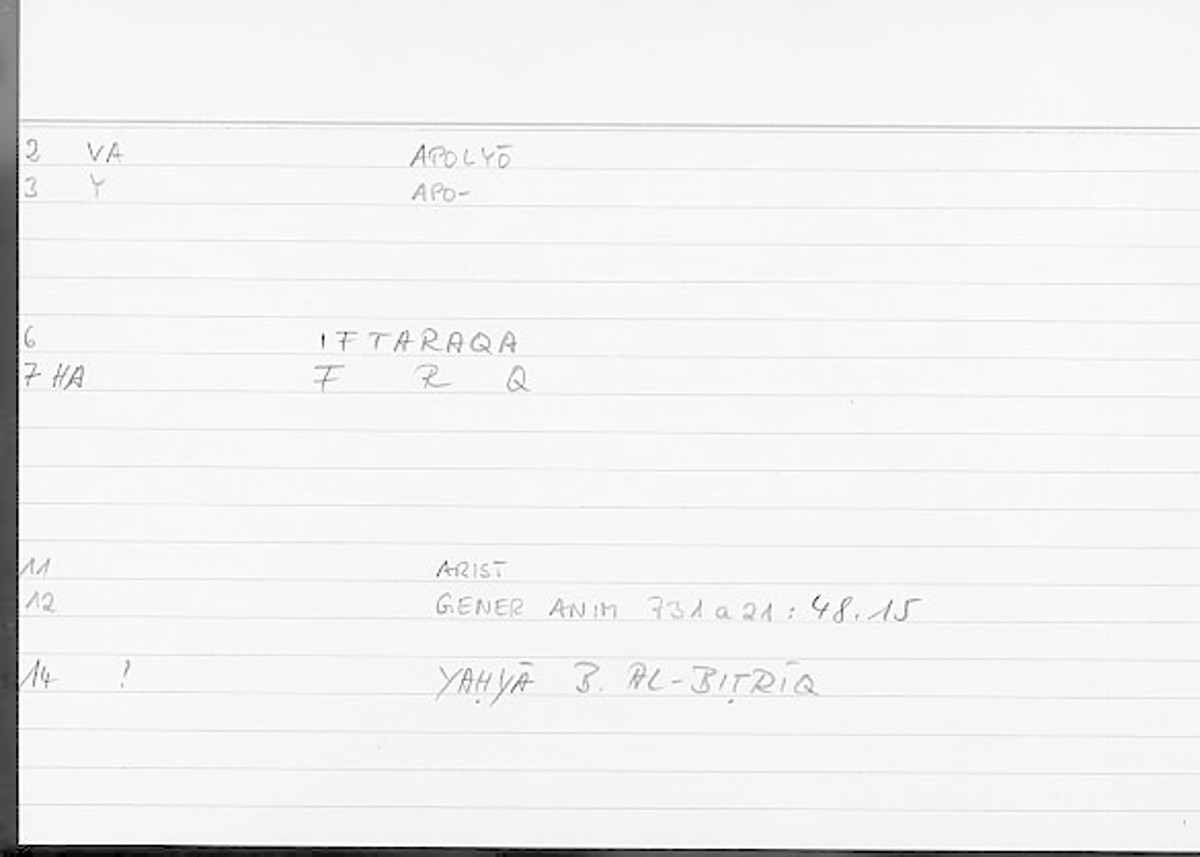 2 VA APOLYŌ
3 Y APO-
6 IFTARAQA
7 HA F R Q
11 ARIST
12 GENER ANIM 731a21:48.15
14 ! YAḤYĀ B. AL-BIṬRĪQ